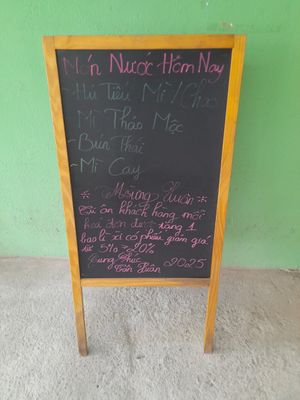 Món Nước Hôm Nay
- Hủ Tiếu Mì / Cháo
Mì Thảo Mộc
- Bún Thái
- Mì Cay
* Mừng Xuân *
Tri ân khách hàng mỗi
hoá đơn được tặng 1
bao lì xì có phiếu giảm giá
từ 5% → 20%
Cung Chúc
Tân Xuân 2025